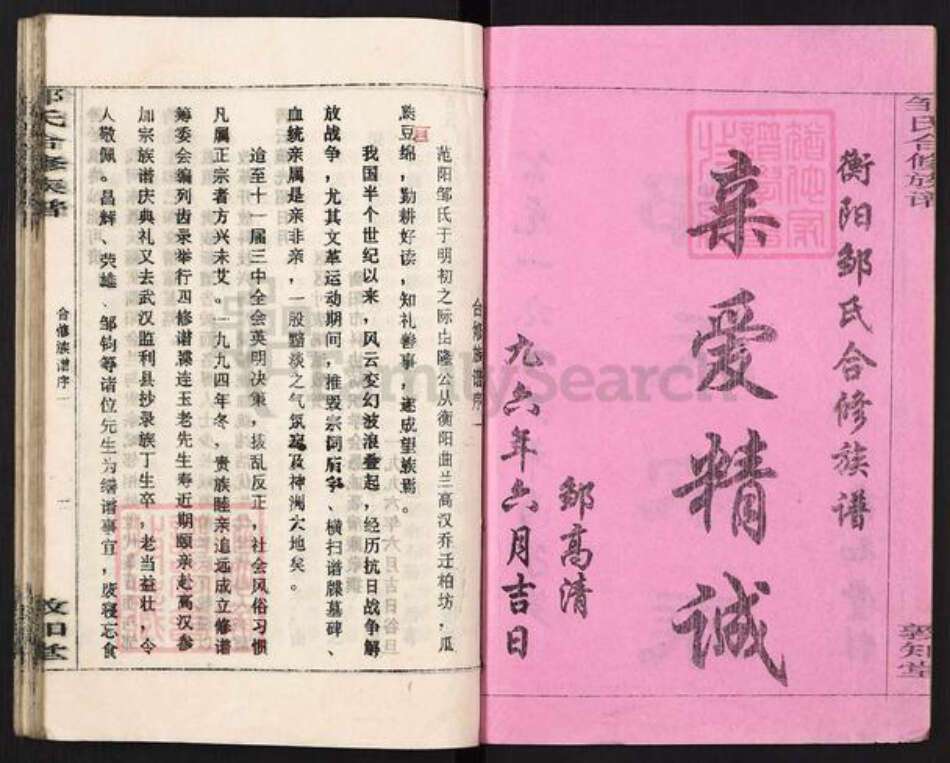 邹氏合修族谱
敦知堂
衡阳邹氏合修族谱
亲爱精诚
邹高清
九六年六月吉日
合修族谱序一
范阳邹氏于明初之际由隆公从衡阳曲兰高汉乔迁柏坊,瓜
瓞豆绵,勤耕好读,知礼善事,遂成望族焉。
我国半个世纪以来,风云变幻波浪叠起,经历抗日战争解
放战争,尤其文革运动期间,推毁宗祠后争、横扫谱牒墓碑、
血统亲属是亲非亲,一股黯淡之气氛寇及神洲大地矣。
迨至十一届三中全会英明决策,拔乱反正,社会风俗习惯
凡属正宗者方兴未艾。一九九四年冬,贵族睦亲追远成立修谱
筹委会编列齿录举行四修谱牒连玉老先生寿近期颐亲赴高汉参
加宗族谱庆典礼又去武汉监利县抄录族丁生卒,老当益壮,令
人敬佩。昌辉、荣雄、邹钧等诸位先生为缮谱事宜,废寝忘食
合修族谱序一
一
邹氏合修族谱
FamilySearch